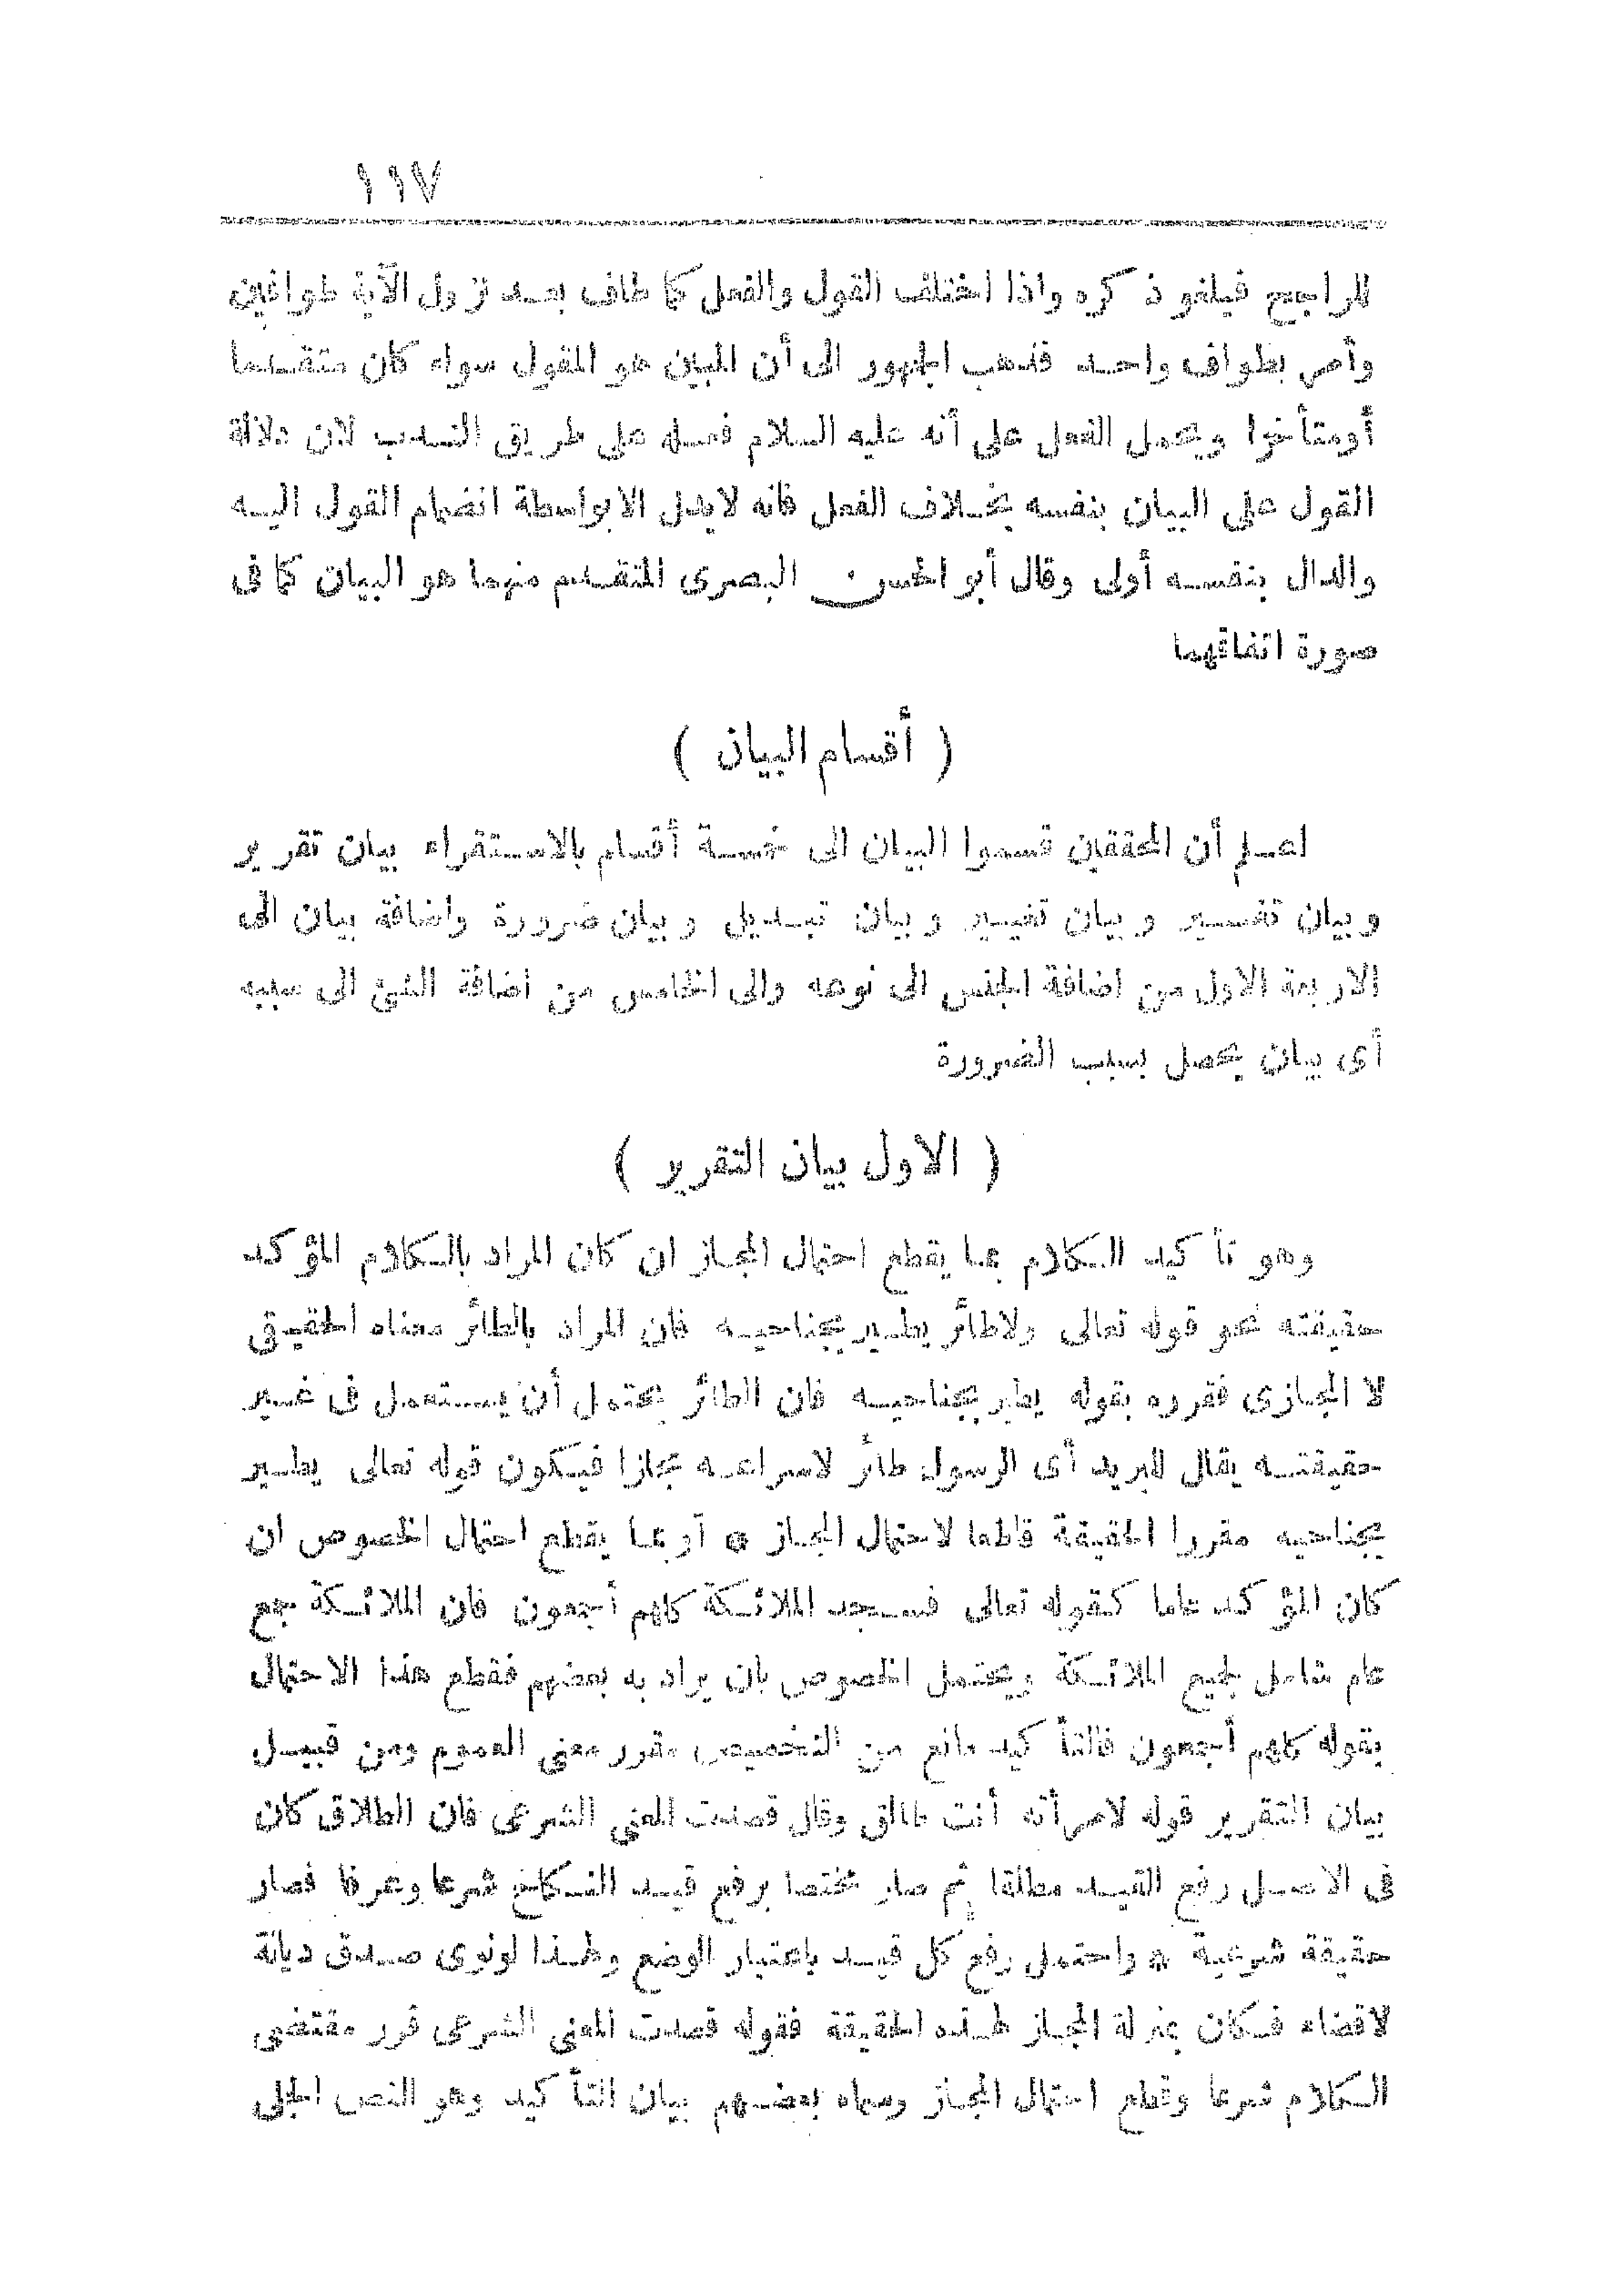 ١١٧
للراجح فيلغو ذكره واذا اختلف القول والفعل كما طاف بعد نزول الآية طوافين
وأمر بطواف واحد فذهب الجمهور الى أن المبين هو القول سواء كان متقدما
أومتأخرا ويحمل الفعل على أنه عليه السلام فعله على طريق الندب لان دلالة
القول على البيان بنفسه بخلاف الفعل فانه لايدل الابواسطة انضمام القول اليه
والدال بنفسه أولى وقال أبو الحسن البصرى المتقدم منهما هو البيان كما فى
صورة اتفاقهما
( أقسام البيان )
اعلم أن المحققين قسموا البيان الى خمسة أقسام بالاستقراء بيان تقرير
وبيان تفسير وبيان تغيير وبيان تبديل وبيان ضرورة واضافة بيان الى
الاربعة الاول من اضافة الجنس الى نوعه والى الخامس من اضافة الشئ الى سببه
أى بيان يحصل بسبب الضرورة
( الاول بيان التقرير )
وهو تأكيد الكلام بما يقطع احتمال المجاز ان كان المراد بالكلام المؤكد
حقيقته نحو قوله تعالى ولاطائر يطير بجناحيه فان المراد بالطائر معناه الحقيقى
لا المجازى فقرره بقوله يطير بجناحيه فان الطائر يحتمل أن يستعمل فى غير
حقيقته يقال للبريد أى الرسول طائر لاسراعه مجازا فيكون قوله تعالى يطير
بجناحيه مقررا الحقيقة قاطعا لاحتمال المجاز * أو بما يقطع احتمال الخصوص ان
كان المؤكد عاما كقوله تعالى فسجد الملائكة كلهم أجمعون فان الملائكة جمع
عام شامل لجميع الملائكة ويحتمل الخصوص بان يراد به بعضهم فقطع هذا الاحتمال
بقوله كلهم أجمعون فالتأكيد مانع من التخصيص مقرر معنى العموم ومن قبيل
بيان التقرير قوله لامرأته أنت طالق وقال قصدت المعنى الشرعى فان الطلاق كان
فى الاصل رفع القيد مطلقا ثم صار مختصا برفع قيد النكاح شرعا وعرفا فصار
حقيقة شرعية * واحتمل رفع كل قيد باعتبار الوضع ولهذا لونوى صدق ديانة
لاقضاء فكان بمنزلة المجاز لهذه الحقيقة فقوله قصدت المعنى الشرعى قرر مقتضى
الكلام شرعا وقطع احتمال المجاز وسماه بعضهم بيان التأكيد وهو النص الجلى